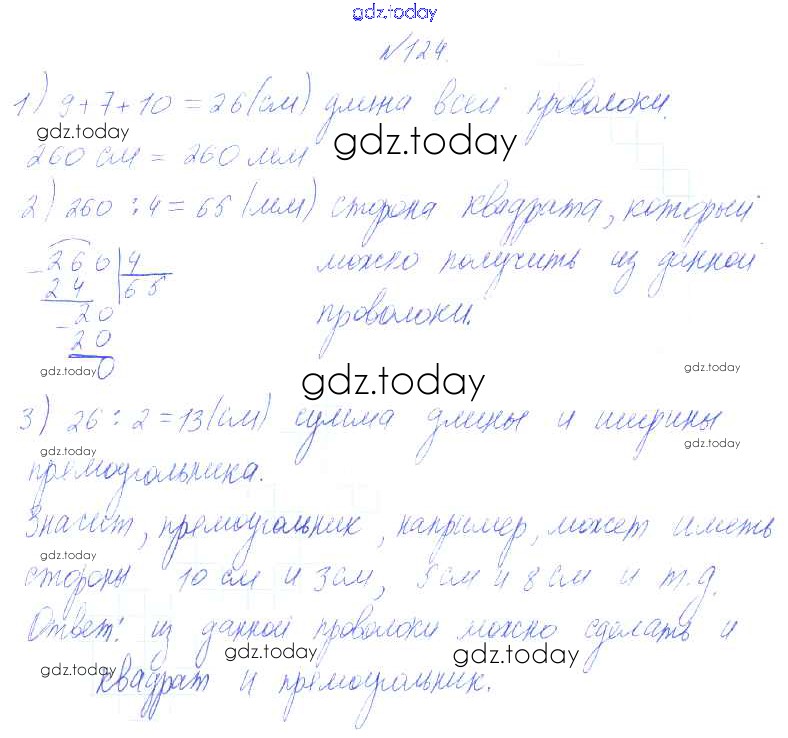 gdz.today
№124.
1) 9+7+10=26(см) длина всей проволоки.
gdz.today
gdz.today
260 см = 260 мм
2) 260:4=65 (мм) сторона квадрата, который
260 4 можно получить из данной
24 65
20 проволоки.
20
gdz.today 0 gdz.today
gdz.today
3) 26:2=13(см) сумма длины и ширины
gdz.today gdz.today
прямоугольника.
Значит, прямоугольник, например, может иметь
gdz.today
стороны 10 см и 3 см, 5 см и 8 см и т.д.
Ответ: из данной проволоки можно сделать и
gdz.today gdz.today
gdz.today
квадрат и прямоугольник.